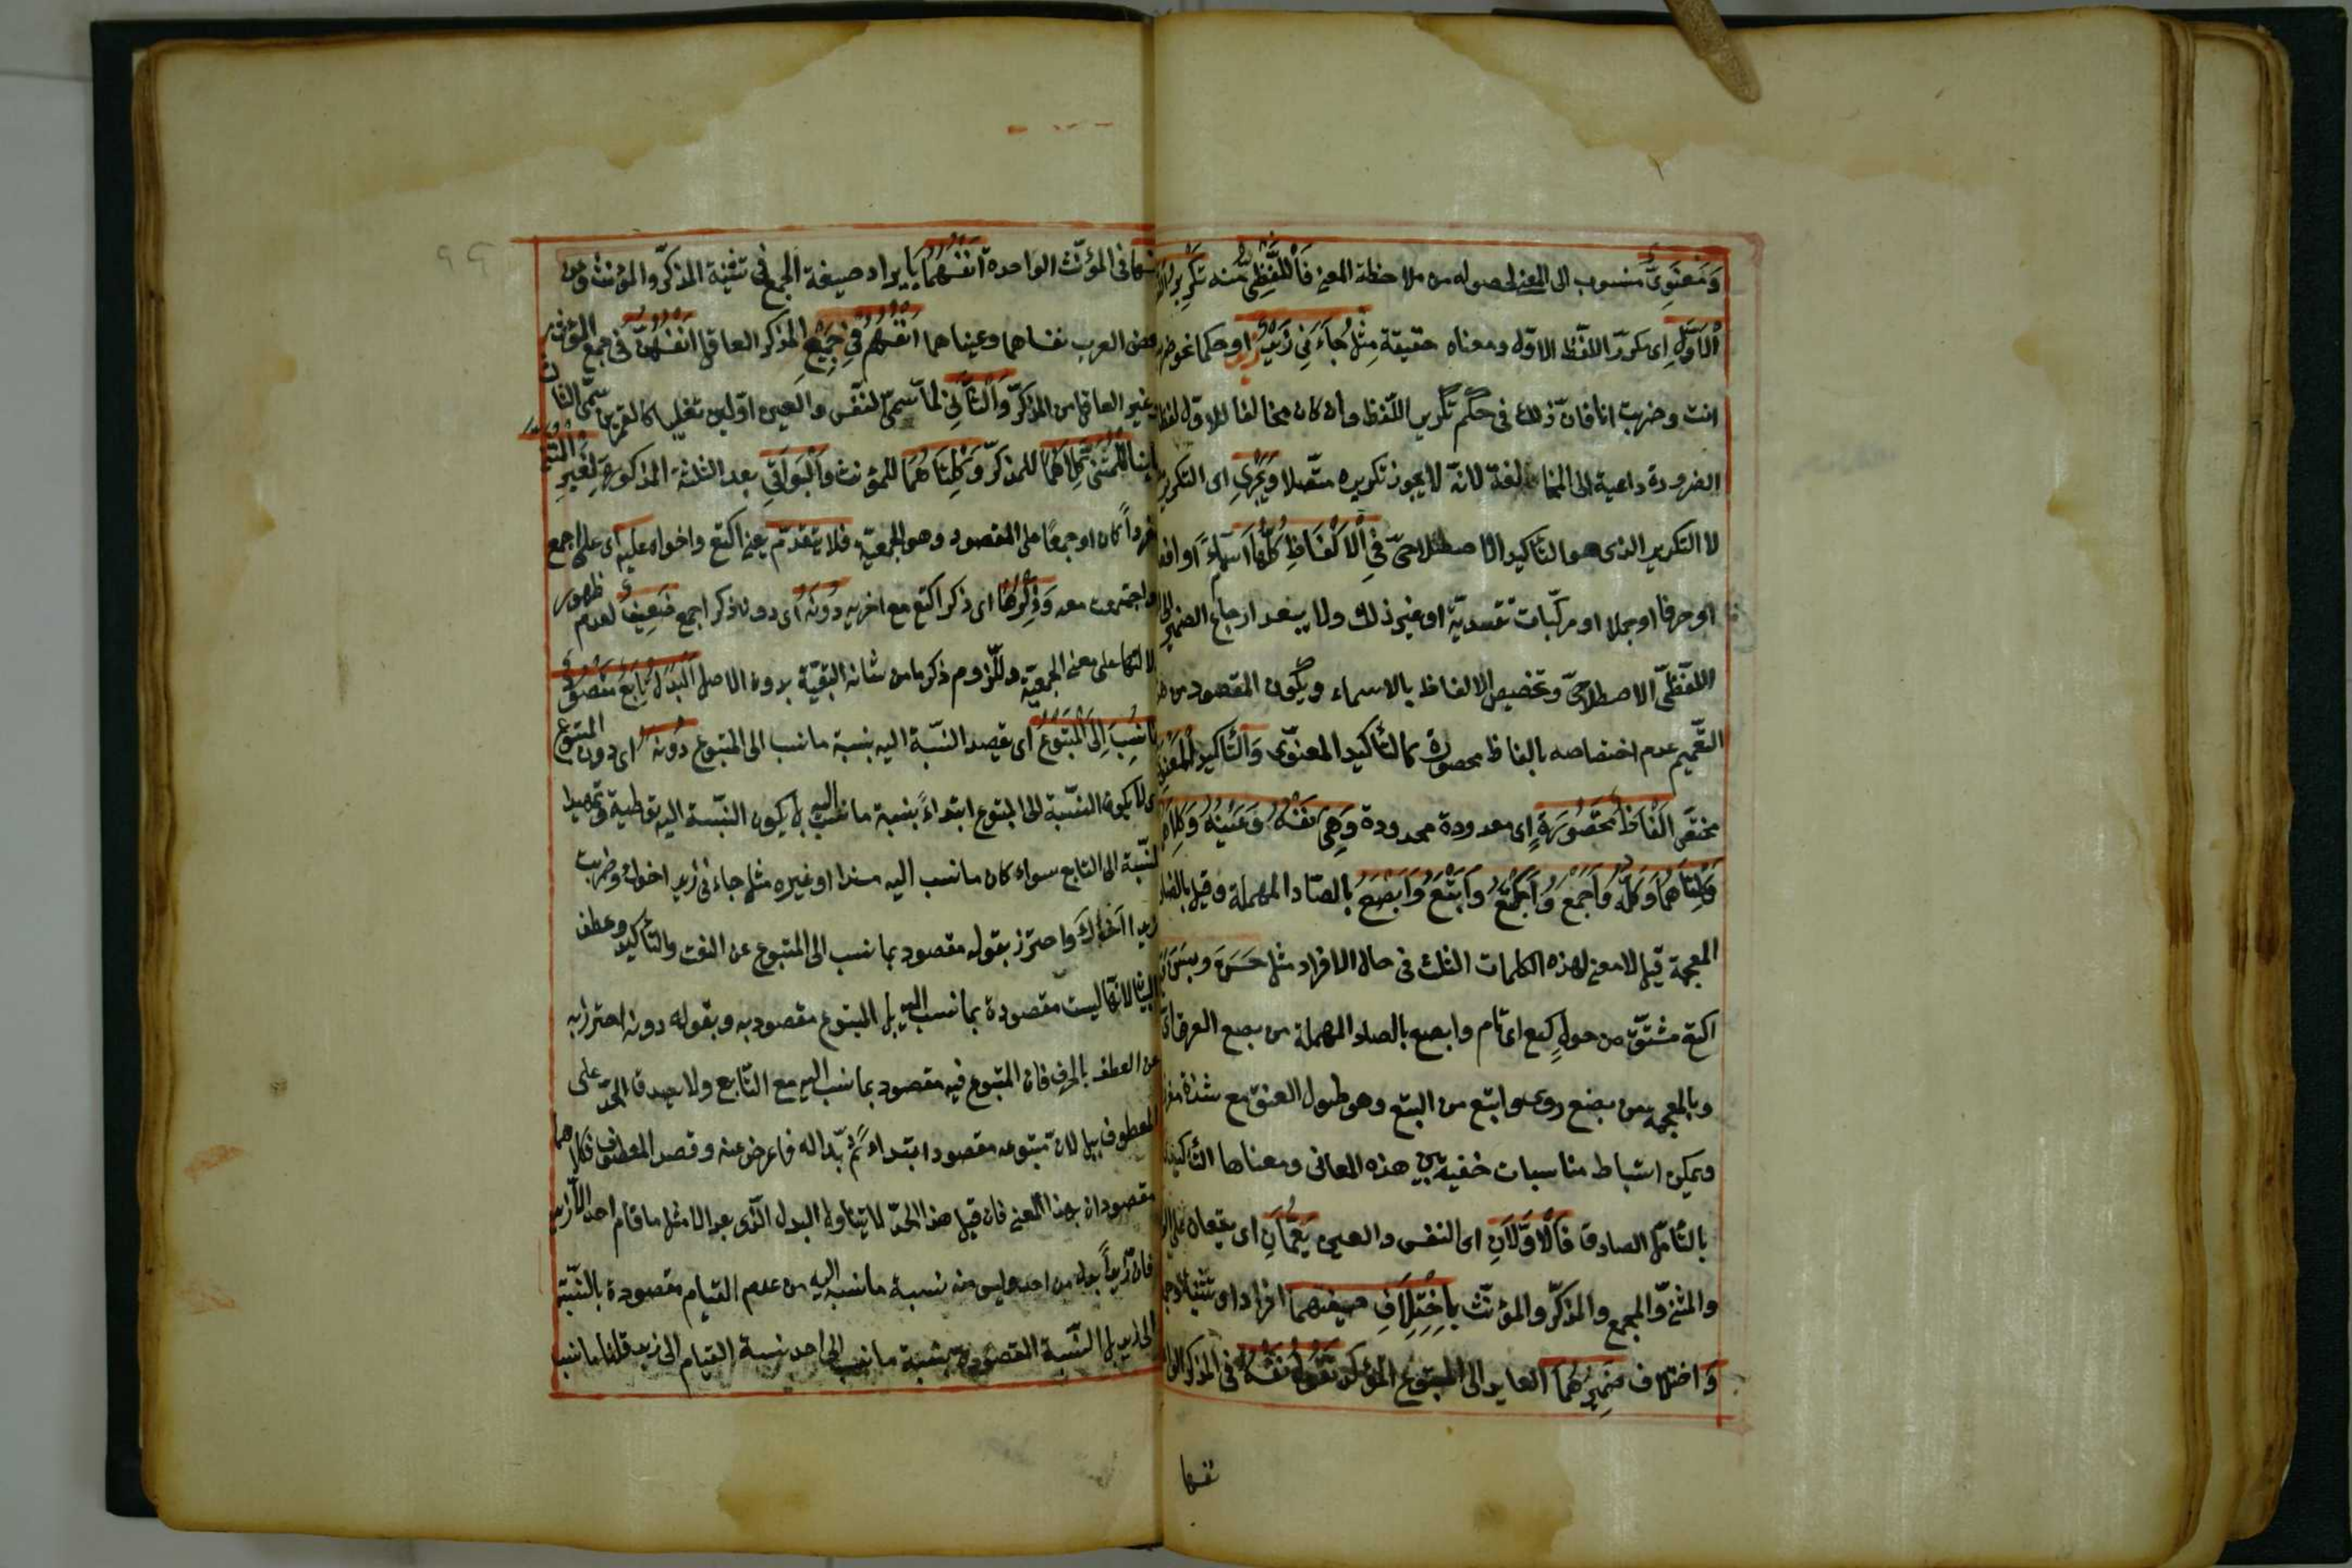 وَمَعْنَوِىٌّ منسوب الى المعنى لحصوله من ملاحظة المعنى فَاللَّفْظِىُّ منه تَكْرِيرُ
الْاَوَّلِ اى مكرّر اللفظ الاوّل ومعناه حقيقة مِثْلُ جَاءَنِى زَيْدٌ زَيْدٌ او حكما نحو ضربت
انت وضربت انا فانّ ذلك فى حكم تكرير اللّفظ وان كان مخالفا للاوّل لفظا
الضرورة داعية الى المخالفة لانّه لا يجوز تكريره متّصلا وَيَجْرِى اى التكرير
لا التكرير الذى هو التأكيد الاصطلاحىّ فِى الْاَلْفَاظِ كُلِّهَا اسماءً او افعالا
او حرفا او جملا او مركّبات تقييديّة او غير ذلك ولا يبعد ارجاع الضمير الى
اللفظىّ الاصطلاحىّ وتخصيص الالفاظ بالاسماء ويكون المقصود من هذا
التّعميم عدم اختصاصه بالفاظ محصورة كالتأكيد المعنوّى وَالتأكيد الْمَعْنَوِىُّ
مختصّ بِاَلْفَاظٍ مَحْصُورَةٍ اى معدودة محدودة وَهِىَ نَفْسُهُ وَعَيْنُهُ وَكِلَاهُمَا
وَكِلْتَاهُمَا وَكُلُّهُ وَاَجْمَعُ وَاَكْتَعُ وَاَبْتَعُ وَاَبْصَعُ بالصّاد المهملة وقيل بالضاد
المعجمة قيل لا معنى لهذه الكلمات الثلث فى حال الافراد مثل حَسَن بَسَن وقيل
اكتع مشتقّ من حولٍ كتيع اى تام وابصع بالصاد المهملة من بصع العرق اى
وبالمعجمة من بضع روى وابتع من البتع وهو طول العنق مع شدّة مغرزه
ويمكن استنباط مناسبات خفية بين هذه المعانى ومعناها التأكيدى
بالتّأمّل الصادق فَالْاَوَّلَانِ اى النفس والعين يَعُمَّانِ اى يقعان على الواحد
والمثنّى والمجمع والمذكّر والمؤنّث بِاخْتِلَافِ صيغتهما افرادا وتثنية وجمعا
وَاختلاف ضَمِيرِهُمَا العايد الى المتبوع المؤكّد تَقُولُ نَفْسُهُ فى المذكر الواحد
نفسها
نفسها فى المؤنّث الواحدة اَنْفُسُهُمَا بايراد صيغة الجمع فى تثنية المذكّر والمؤنث وعن
بعض العرب نفساهما وعيناهما اَنْفُسُهُمْ فى جَمْعِ المذكر العاقل اَنْفُسُهُنَّ فى جمع المؤنث
وغير العاقل من المذكّر وَالثَّانِى لمّا سمّى النفس والعين اوّلين تغليبا كالقمرين سمّى الثالث
ثانيا لِلْمُثَنَّى كِلَاهُمَا للمذكّر وَكِلْتَاهُمَا للمؤنث وَالْبَوَاقِى بعد الثلثة المذكورة لِغَيْرِ الْمُثَنَّى
مفرداً كان او جمعًا
على المقصود وهو الجمعيّة فلا يتقدّم يعنى اكتع واخواه عليه اى على اجمع
واجتمعن معه وَذِكْرُهَا اى ذكر اكتع مع اخويه دُونَهُ اى دون ذكر اجمع ضَعِيفٌ لعدم ظهور
دلالتها على معنى الجمعيّة وللّزوم ذكر ما من شانه التبعيّة بدون الاصل اَلْبَدَلُ تَابِعٌ مَقْصُودٌ
بِمَا نُسِبَ اِلَى الْمَتْبُوعِ اى يقصد النّسبة اليه بنسبة ما نسب الى المتبوع دُونَهُ اى دون المتبوع
اى لا يكون النسّبة الى المتبوع ابتداءً بنسبة ما نسب اليه بل يكون النّسبة اليه توطية وتمهيدا
لنّسبة الى التابع سواء كان ما نسب اليه مسندا او غيره مثل جاءنى زيد اخوك وضربت
زيدا اَخَاكَ واحترز بقوله مقصود بما نسب الى المتبوع عن النعت والتأكيد وعطف
البيان لانّها ليست مقصودة بما نسب اليه بل المتبوع مقصود به وبقوله دونه احترز به
عن العطف بالحرف فان المتبوع فيه مقصود بما نسب اليه مع التّابع ولا يصدق الحدّ على
المعطوف ببل لانّ متبوعه مقصود ابتداءً ثمّ بدا له فاعرض عنه وقصد المعطوف فكلاهما
مقصودان بهذا المعنى فان قيل هذا الحدّ لا يتناول البدل الّذى بعد الّا مثل ما قام احد الّا زيد
فانّ زيداً بدل من احد وليس منه نسبة ما نسب اليه من عدم القيام مقصودة بالنّسبة
الى زيد بل النّسبة المقصودة بنسبة ما نسب الى احد نسبة القيام الى زيد قلنا ما نسب